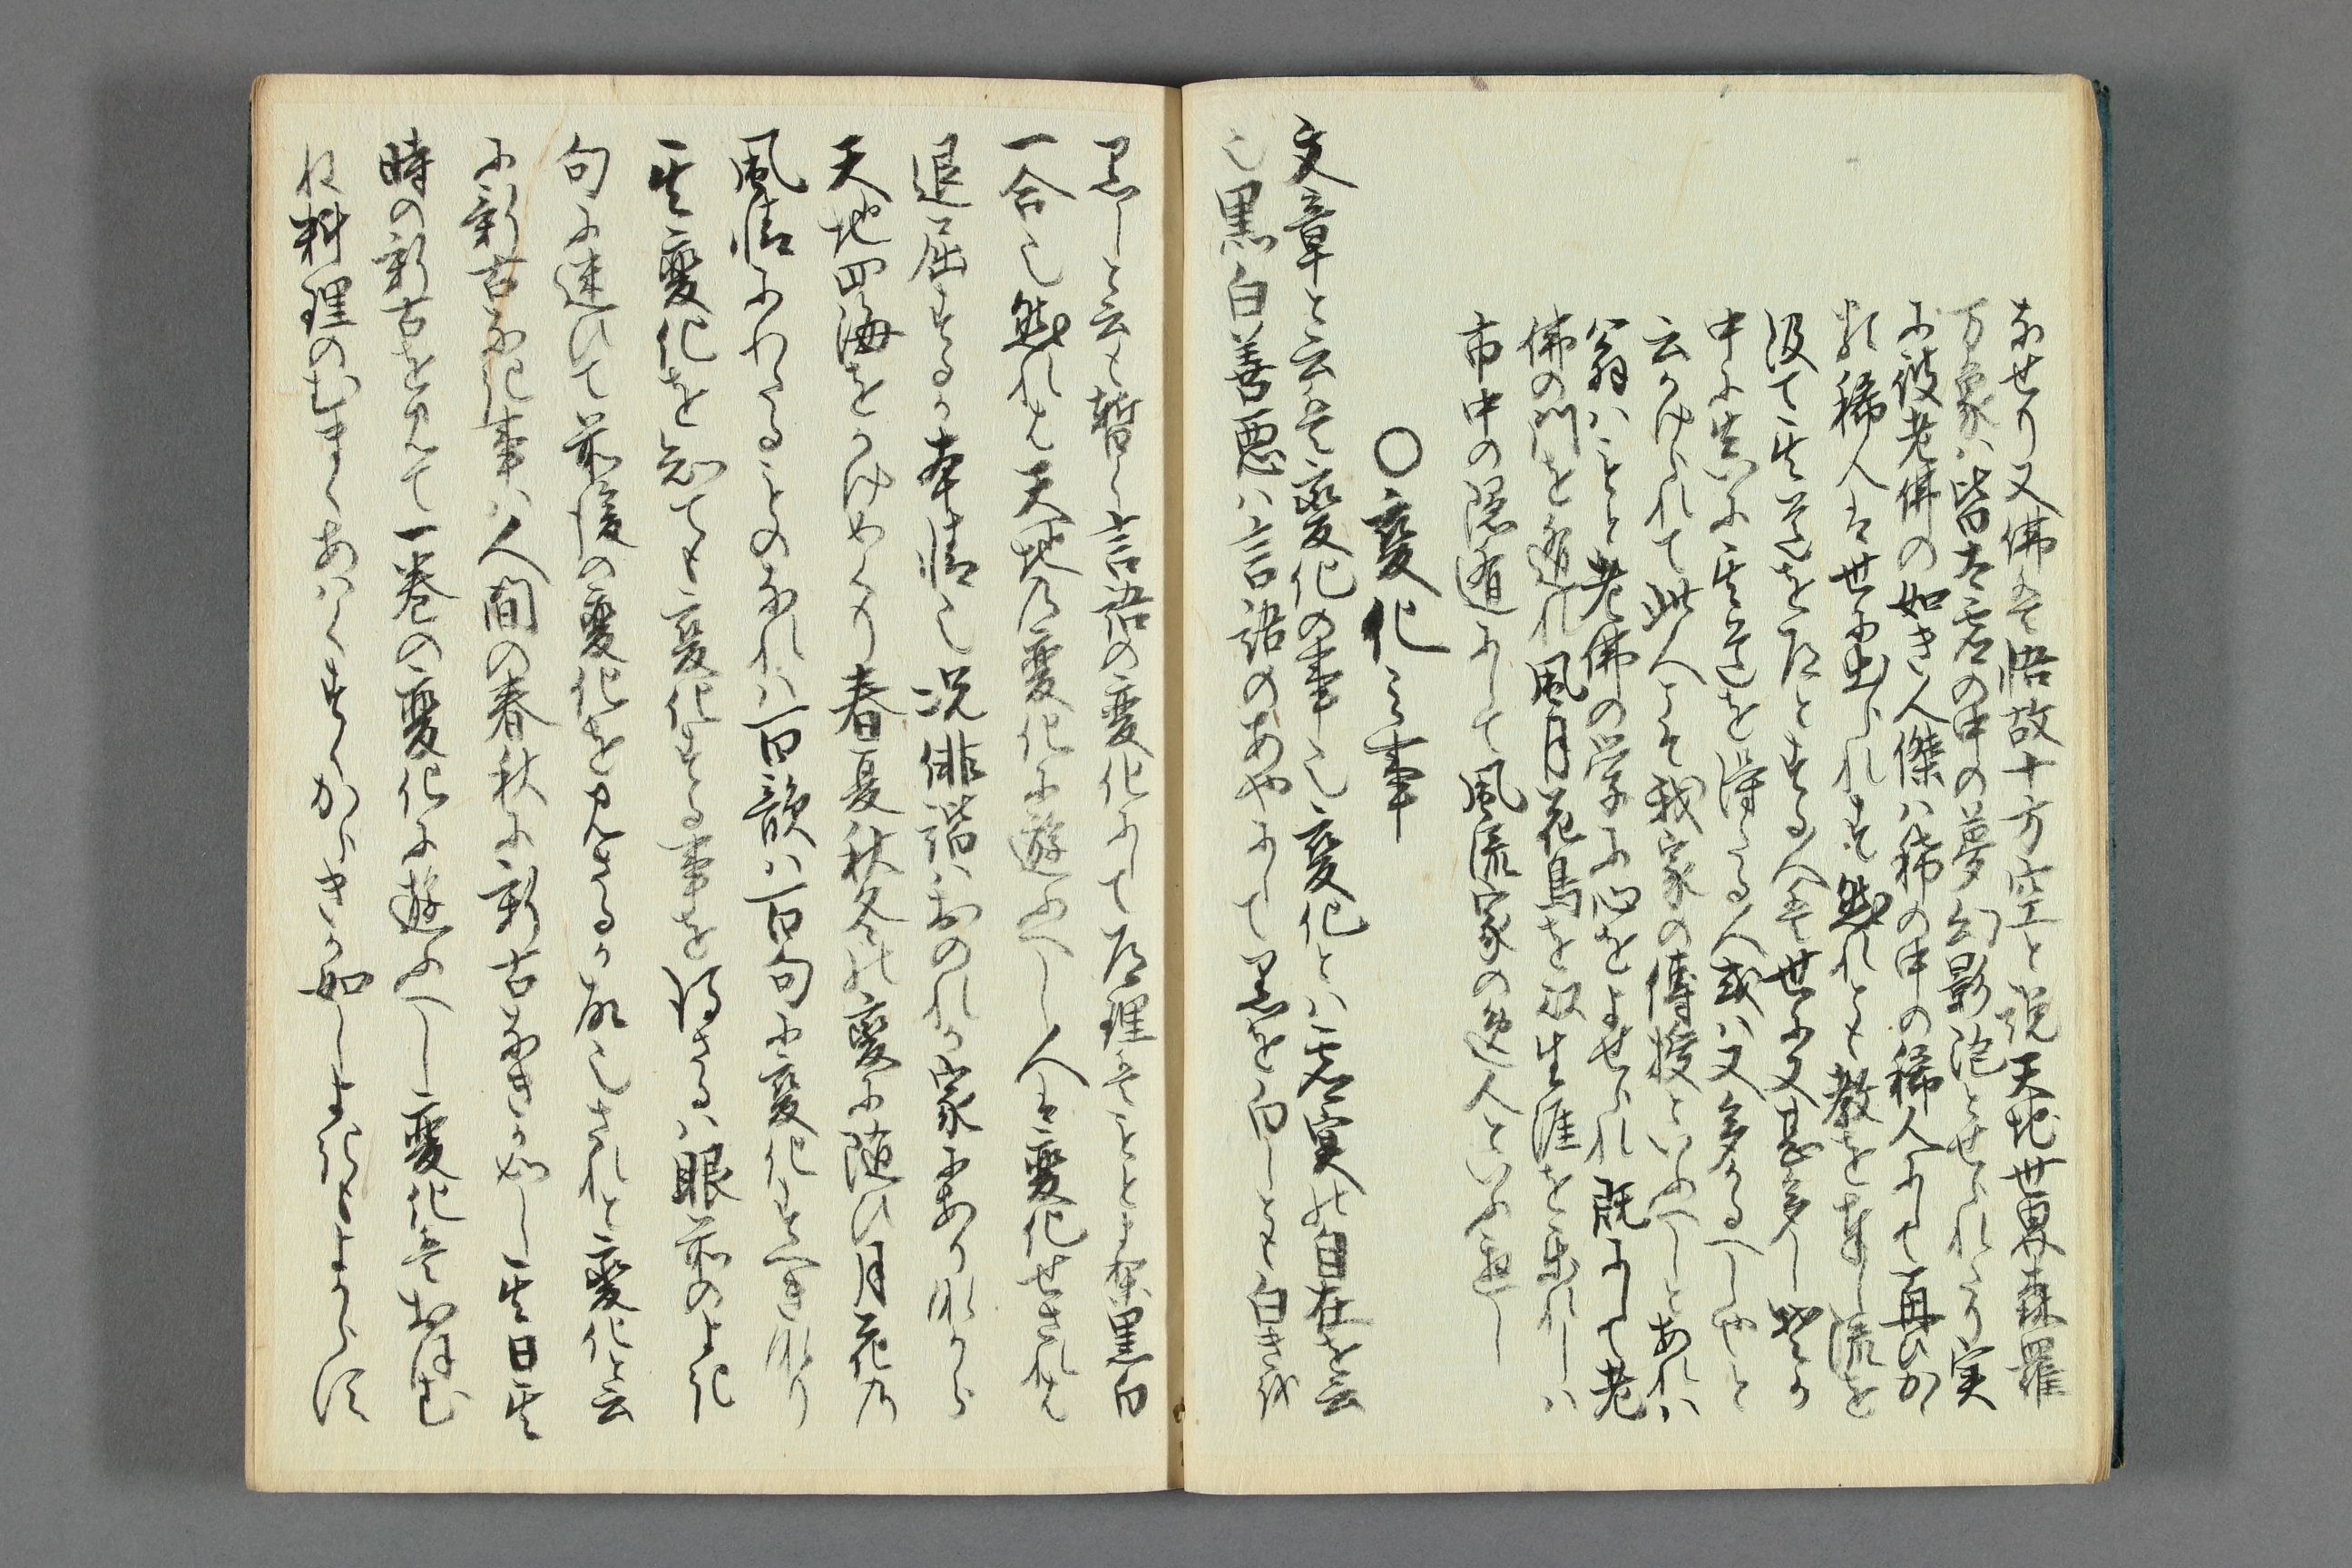 なせり又佛は悟故十方空と説天地世界森羅
万象ハ皆大虚の中の夢幻影泡とせられたり実
に彼老佛の如き人傑ハ稀の中の稀人にして再ひか
る稀人は世に出られす然れとも教を奉し流を
汲て其道を尊とする人は世に又甚多し
中に其道を得たる人或ハ又多かるへしやと
云かけられて此人こそ我家の傳授といふへしとあれハ
翁ハもと老佛の学に心をよせられ既にして老
佛の門を遁れ風月花鳥を生涯を楽れしハ
市中の隠遁にして風流家の逸人といふへし
〇変化之事
文章と云は変化の事也変化とハ虚実の自在を云
也黒白善悪ハ言語のあやにして黒を白しとも白きを
黒しと云も暫く言語の変化にして道理はもとより黒白
一合也然れは天地の変化に遊ふへし人は変化せされは
退屈するか本情也况俳諧ハおのれか家にありなから
天地四海をかけめくり春夏秋冬の変に随ひ月花の
風情にわたることのなれハ百韻ハ百句に変化すへき也
其変化を知ても変化する事を得さるハ眼前のよき
句に迷ひて前後の変化を見さるか故也されと変化と云
に新古なき事ハ人間の春秋に新古なきか如し其日其
時の新古を見て一巻の変化に遊ふへし変化はおほむ
ね料理のむまくあハくすくからきか如しよきもよからす